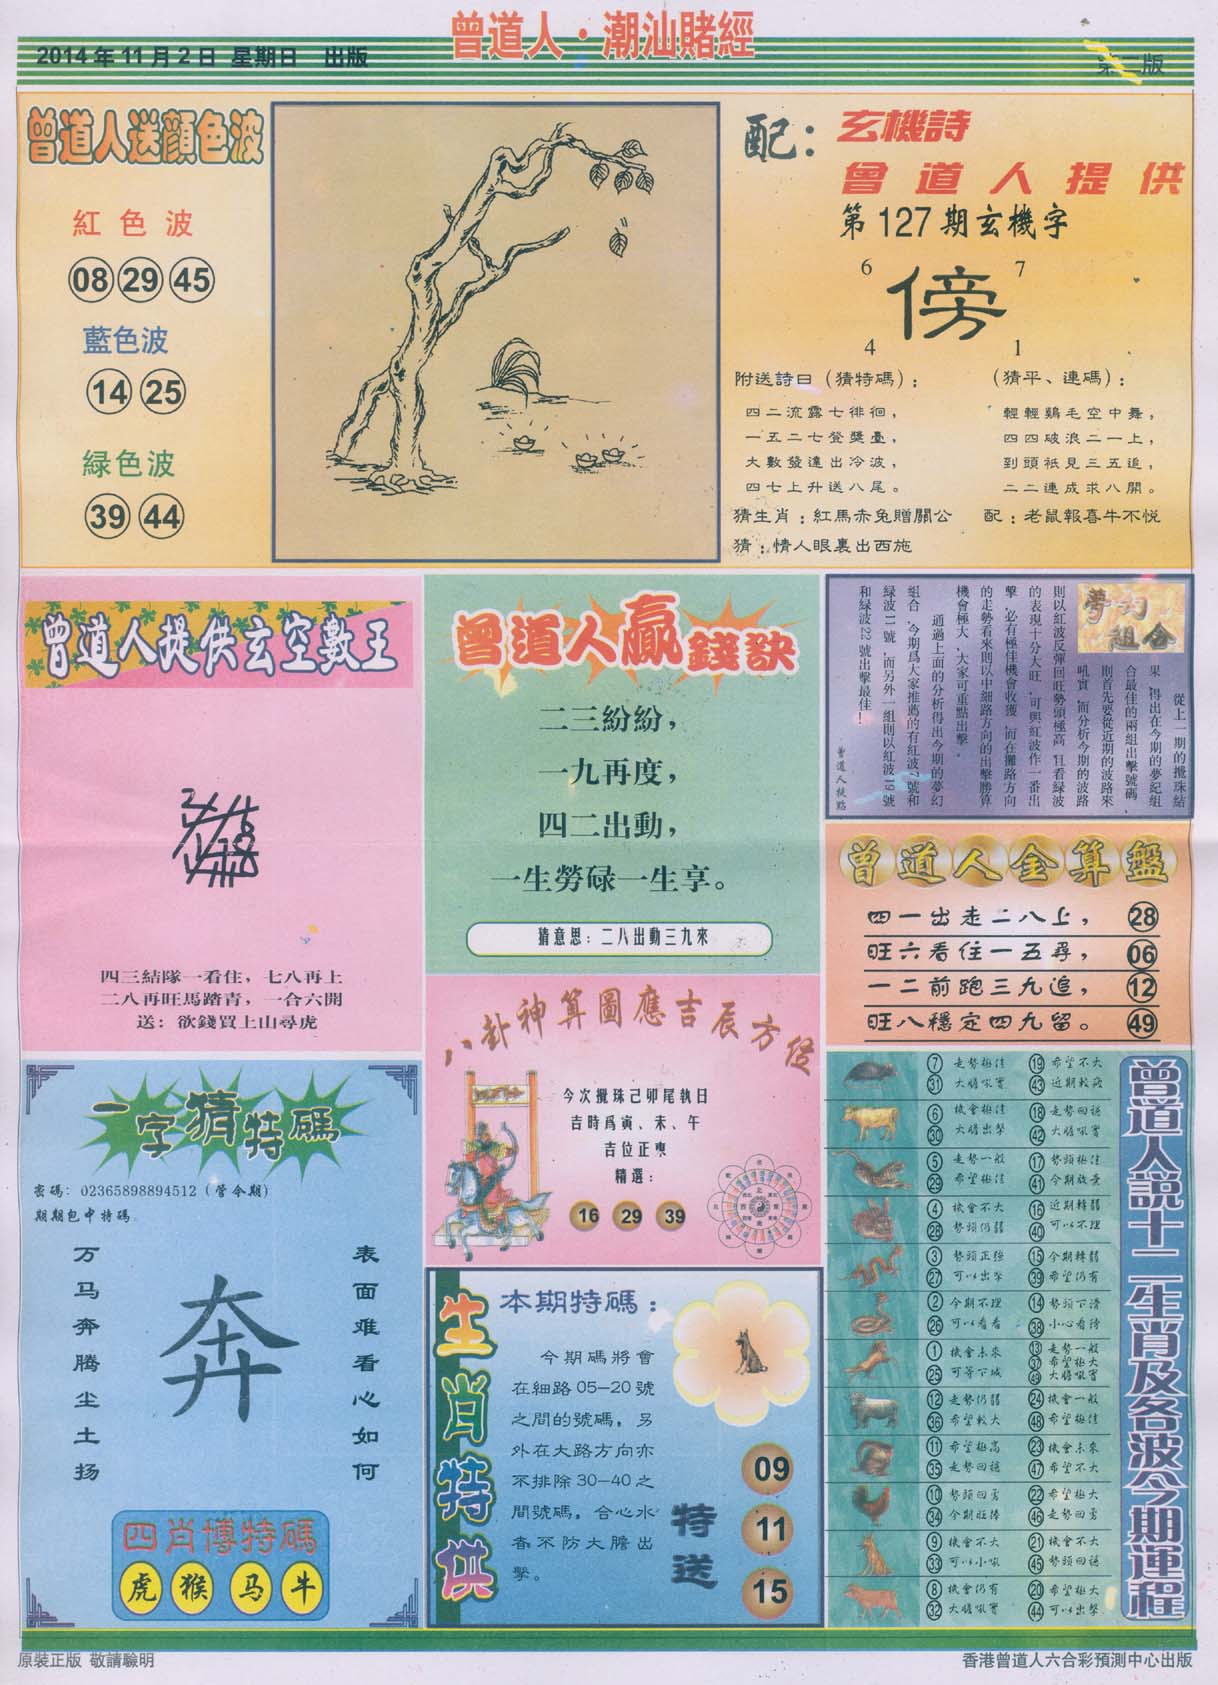 曾道人·潮汕賭經
2014年11月2日 星期日 出版
第二版
曾道人送顏色波
紅色波
08 29 45
藍色波
14 25
緑色波
39 44
配：玄機詩
曾道人提供
第127期玄機字
6 7
傍
4 1
附送詩曰（猜特碼）：
四二流露七徘徊，
一五二七登獎臺，
大數發達出冷波，
四七上升送八尾。
（猜平、連碼）：
輕輕鷄毛空中舞，
四四破浪二一上，
到頭祇見三五追，
二二連成求八開。
猜生肖：紅馬赤兔贈關公
配：老鼠報喜牛不悦
猜：情人眼裏出西施
曾道人提供玄空數王
四三結隊一看住，七八再上
二八再旺馬踏青，一合六開
送：欲錢買上山尋虎
曾道人贏錢訣
二三紛紛，
一九再度，
四二出動，
一生勞碌一生享。
猜意思：二八出動三九來
夢幻組合
從上一期的攪珠結
果，得出在今期的夢紀組
合最佳的兩組出擊號碼，
則首先要從近期的波路來
吼實，而分析今期的波路
則以紅波反彈回旺勢頭極高，且看緑波
的表現十分大旺，可與紅波作一番出
擊，必有極佳機會收獲，而在攤路方向
的走勢看來則以中細路方向的出擊勝算
機會極大，大家可重點出擊。
通過上面的分析得出今期的夢幻
組合，今期爲大家推薦的有紅波7號和
緑波11號，而另外一組則以紅波19號
和緑波22號出擊最佳！
曾道人金算盤
四一出走二八上， 28
旺六看住一五尋， 06
一二前跑三九追， 12
旺八穩定四九留。 49
八卦神算圖應吉辰方位
今次攪珠己卯尾執日
吉時爲寅、未、午
吉位正東
精選：
16 29 39
一字猜特碼
密碼：02365898894512（管今期）
期期包中特碼
万马奔腾尘土扬
奔
表面难看心如何
四肖博特碼
虎 猴 马 牛
生肖特供
本期特碼：
今期碼將會
在細路05—20號
之間的號碼，另
外在大路方向亦
不排除30—40之
間號碼，合心水
者不防大膽出
擊。
特送
09
11
15
曾道人説十二生肖及各波今期運程
7 走勢極佳 19 希望不大
31 大膽吼實 43 近期較疲
6 機會極佳 18 走勢回穩
30 大膽出擊 42 大膽吼實
5 走勢一般 17 勢頭極佳
29 希望極佳 41 今期放棄
4 機會不大 16 近期轉弱
28 勢頭仍弱 40 可以不理
3 勢頭正強 15 今期轉弱
27 可以出擊 39 希望仍有
2 今期不理 14 勢頭下滑
26 可以看看 38 小心看待
1 機會未來 13 走勢一般
37 希望極大
25 可等下城 49 大膽吼實
12 走勢仍弱 24 機會一般
36 希望較大 48 希望極佳
11 希望極高 23 機會未來
35 走勢回穩 47 希望不大
10 勢頭回勇 22 希望極大
34 今期旺捧 46 走勢回勇
9 機會不大 21 機會不大
33 可以小吼 45 勢頭回穩
8 機會仍有 20 希望極大
32 大膽吼實 44 可以出擊
原裝正版 敬請驗明
香港曾道人六合彩預測中心出版